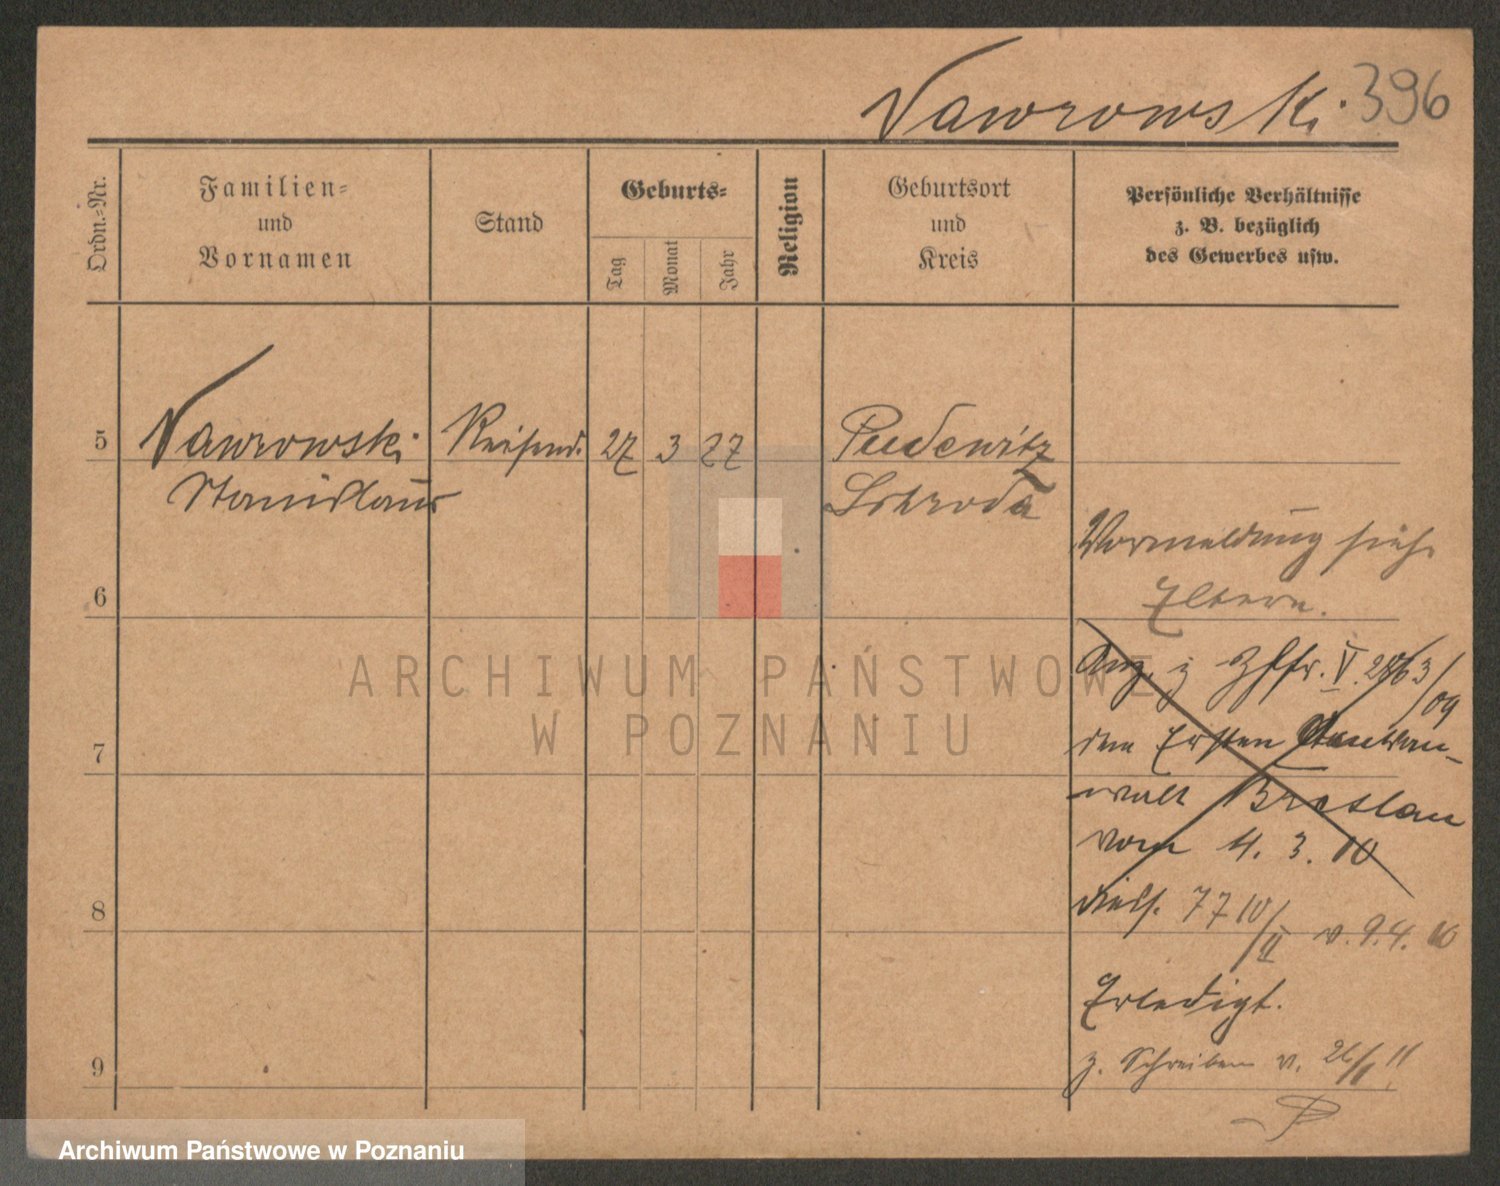 Nawrowski. 396
Ordn.=Nr.
Familien=
und
Vornamen
Stand
Geburts=
Tag
Monat
Jahr
Religion
Geburtsort
und
Kreis
Persönliche Verhältnisse
z. B. bezüglich
des Gewerbes usw.
5 Nawrowski Reisend. 27 3 77 Pudewitz
Stanislaus Schroda
Vormeldung siehe
6 Eltern.
Anz. z V. 2863/09
7 dem Ersten
Breslau
vom 4. 3. 10
8 7710/II v. 9.4. 10
Erledigt.
9 z. Schreiben v.
ARCHIWUM PAŃSTWOWE
W POZNANIU
Archiwum Państwowe w Poznaniu